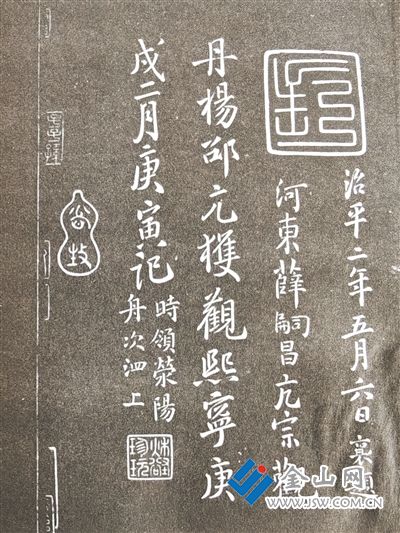 治平二年五月六日襄題
河東薛嗣昌亢宗觀
丹楊邵亢獲觀熙寧庚
戌二月庚寅記
時領滎陽
舟次泗上
秋壑
珍玩
金山网
WWW.JSW.COM.CN